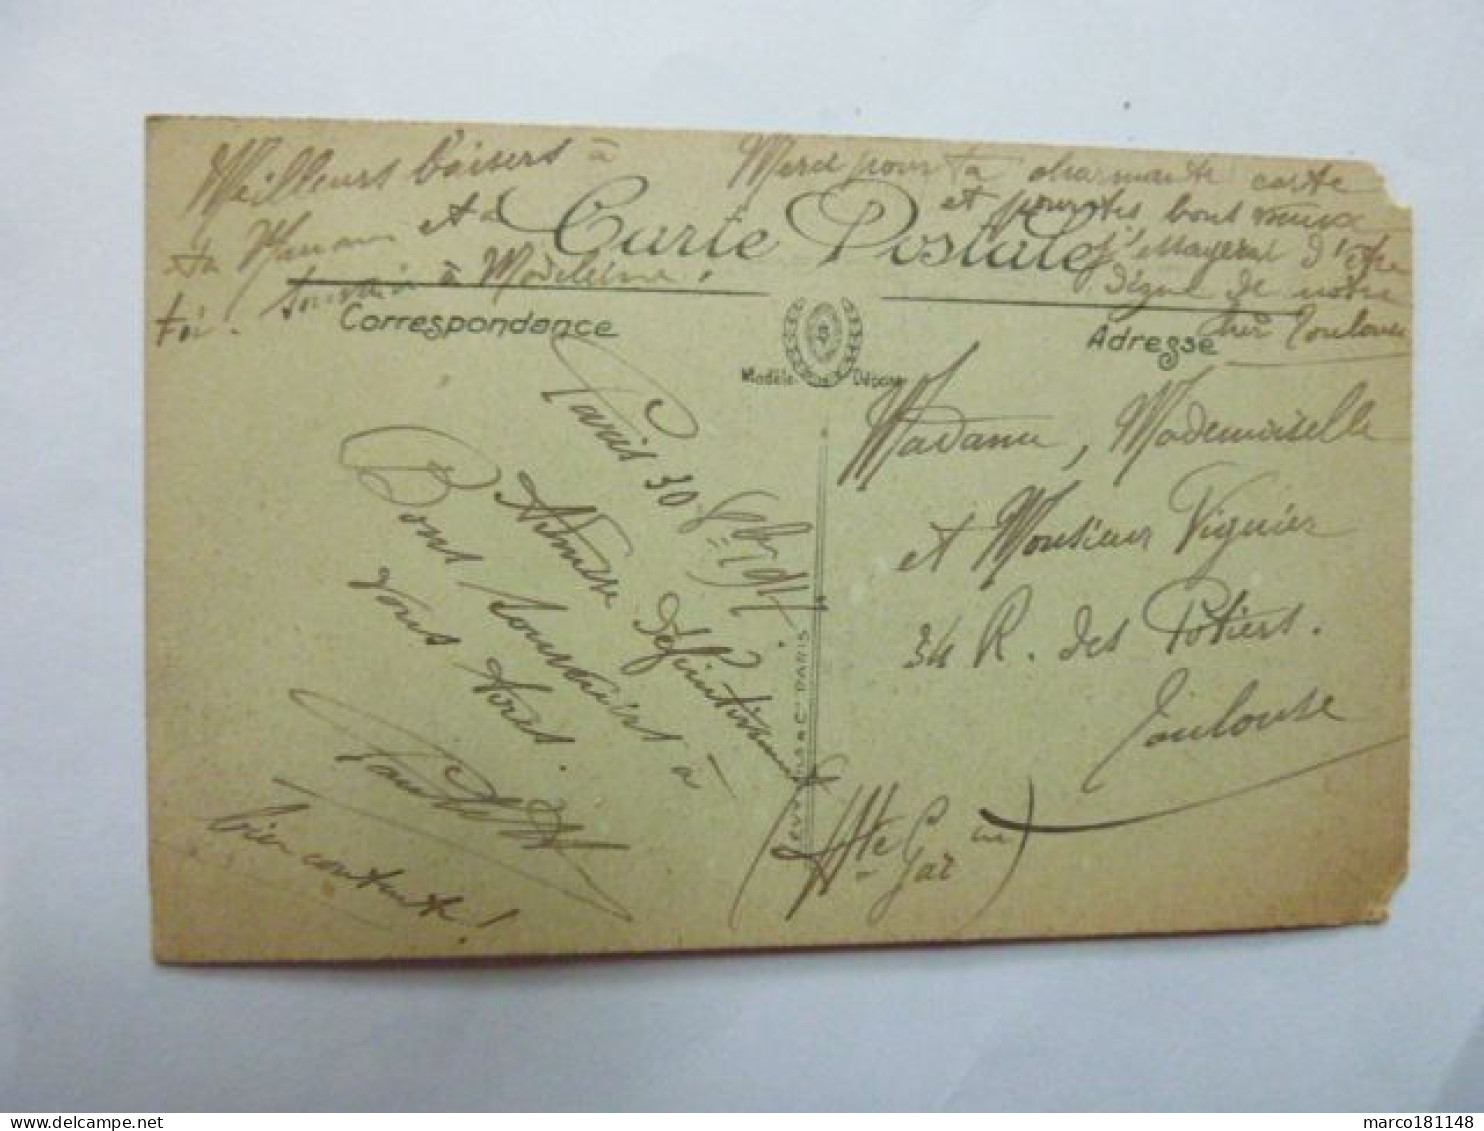 Meilleurs baisers à
ta Maman et à
toi. Souvenir à Madeleine !
Merci pour ta charmante carte
et pour tes bons vœux
j'essayerai d'être
digne de notre
cher Toulouse
Carte Postale
Correspondance
Adresse
Modèle Déposé
Paris 30 Sept.
définitivement
Bons souvenirs à
vous tous.
bien contente !
Madame, Mademoiselle
et Monsieur Viguier
34 R. des Potiers.
Toulouse
(Hte Gar ne)
& Cie PARIS
marco181148